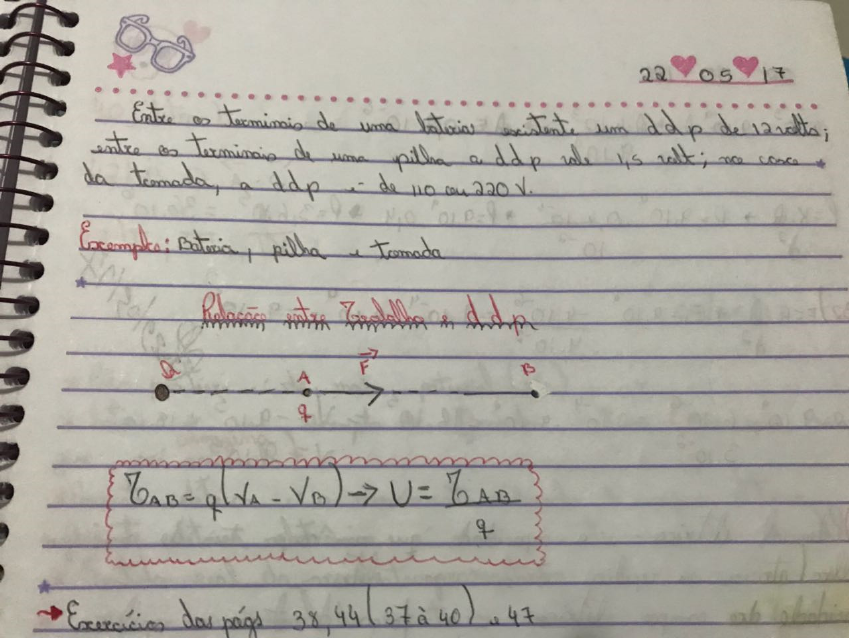 22 05 17
Entre os terminais de uma bateria existente um ddp de 12 volts;
entre os terminais de uma pilha a ddp vale 1,5 volt; no caso
da tomada, a ddp é de 110 ou 220 V.
Exemplo: Bateria, pilha e tomada
Relação entre Trabalho e ddp
Q A F B
q
τAB = q(VA - VB) → U = τAB
q
→ Exercícios das págs 38, 44 (37 à 40) e 47